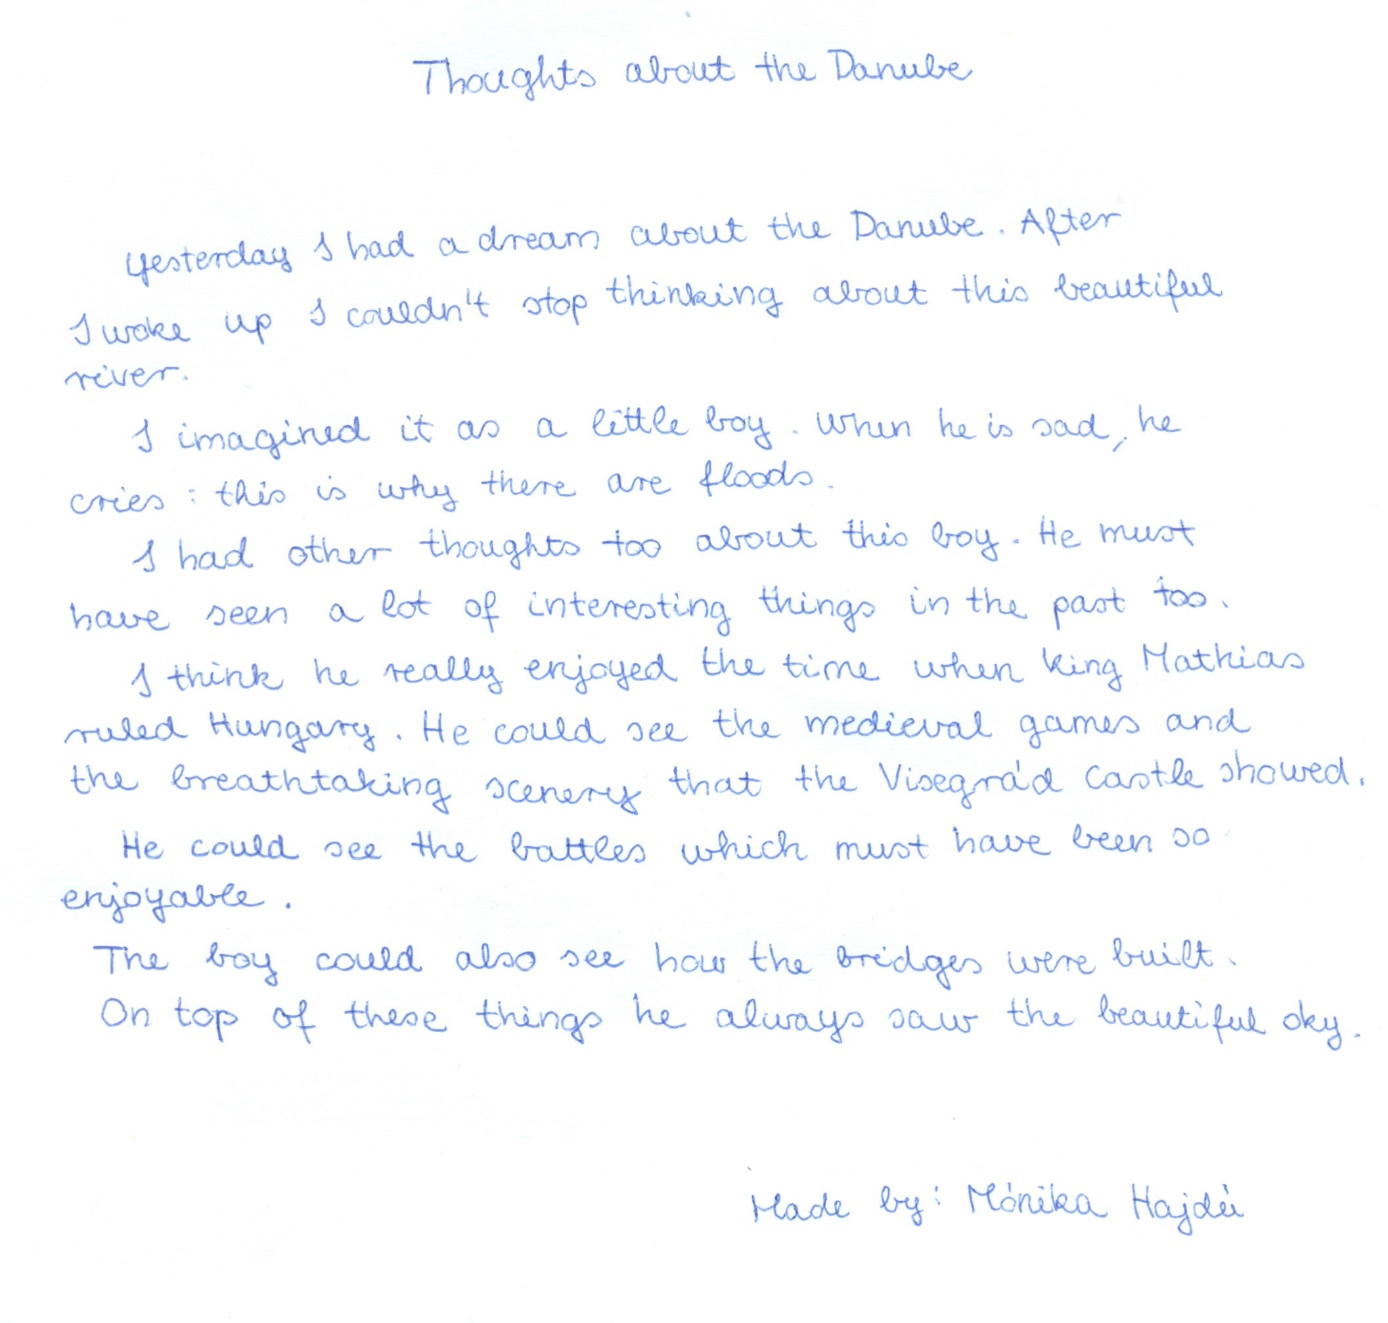 Thoughts about the Danube
Yesterday I had a dream about the Danube. After
I woke up I couldn't stop thinking about this beautiful
river.
I imagined it as a little boy. When he is sad, he
cries: this is why there are floods.
I had other thoughts too about this boy. He must
have seen a lot of interesting things in the past too.
I think he really enjoyed the time when king Mathias
ruled Hungary. He could see the medieval games and
the breathtaking scenery that the Visegrád Castle showed.
He could see the battles which must have been so
enjoyable.
The boy could also see how the bridges were built.
On top of these things he always saw the beautiful sky.
Made by: Mónika Hajdú